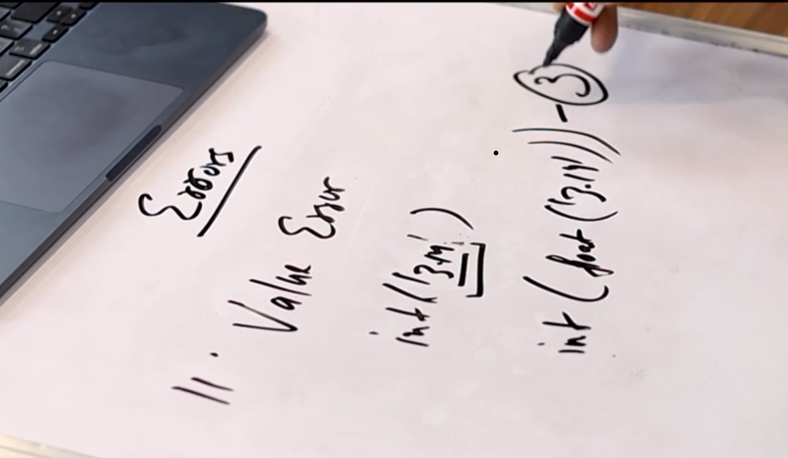 Errors
11. Value Error
int('3.14')
int(float('3.14')) - 3